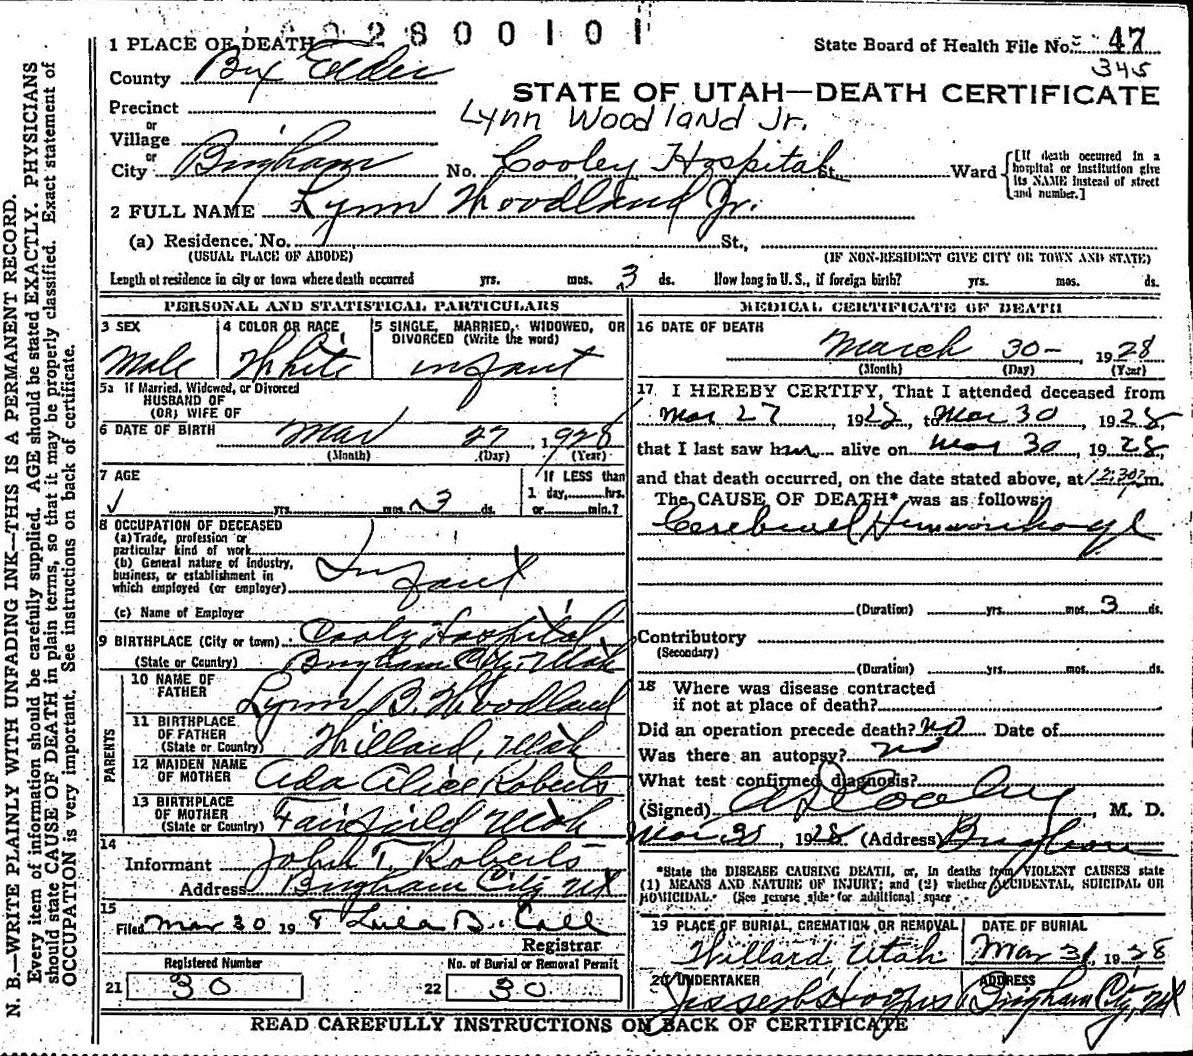 2800101
1 PLACE OF DEATH
State Board of Health File No. 47
345
County Box Elder
STATE OF UTAH—DEATH CERTIFICATE
Precinct
Lynn Woodland Jr.
or
Village
or
City Brigham No. Cooley Hospital St. Ward [If death occurred in a hospital or institution give its NAME instead of street and number.]
2 FULL NAME Lynn Woodland Jr.
(a) Residence. No. St.,
(USUAL PLACE OF ABODE) (IF NON-RESIDENT GIVE CITY OR TOWN AND STATE)
Length of residence in city or town where death occurred yrs. mos. 3 ds. How long in U. S., if foreign birth? yrs. mos. ds.
PERSONAL AND STATISTICAL PARTICULARS
3 SEX
Male
4 COLOR OR RACE
White
5 SINGLE, MARRIED, WIDOWED, OR DIVORCED (Write the word)
infant
5a If Married, Widowed, or Divorced
HUSBAND OF
(OR) WIFE OF
6 DATE OF BIRTH Mar 27, 1928
(Month) (Day) (Year)
7 AGE
yrs. mos. 3 ds.
If LESS than
1 day, hrs.
or min.?
8 OCCUPATION OF DECEASED
(a) Trade, profession or
particular kind of work
(b) General nature of industry,
business, or establishment in
which employed (or employer)
Infant
(c) Name of Employer
9 BIRTHPLACE (City or town) Cooly Hospital
(State or Country) Brigham City, Utah
PARENTS
10 NAME OF
FATHER Lynn B. Woodland
11 BIRTHPLACE
OF FATHER
(State or Country) Willard, Utah
12 MAIDEN NAME
OF MOTHER Ada Alice Roberts
13 BIRTHPLACE
OF MOTHER
(State or Country) Fairfield Utah
14
Informant John T. Roberts
Address Brigham City Ut
15
Filed Mar 30 19 8 Lula B. Call
Registrar
Registered Number
21 30
No. of Burial or Removal Permit
22 30
MEDICAL CERTIFICATE OF DEATH
16 DATE OF DEATH
March 30-, 1928
(Month) (Day) (Year)
17 I HEREBY CERTIFY, That I attended deceased from
Mar 27 1928, to Mar 30, 1928,
that I last saw him alive on Mar 30, 1928,
and that death occurred, on the date stated above, at 12:30 P m.
The CAUSE OF DEATH* was as follows:
Cerebral Hemmorhage
(Duration) yrs. mos. 3 ds.
Contributory
(Secondary)
(Duration) yrs. mos. ds.
18 Where was disease contracted
if not at place of death?
Did an operation precede death? No Date of
Was there an autopsy? no
What test confirmed diagnosis?
(Signed) A D Cooley, M. D.
Mar 31, 1928 (Address) Brigham
*State the DISEASE CAUSING DEATH, or, in deaths from VIOLENT CAUSES state
(1) MEANS AND NATURE OF INJURY; and (2) whether ACCIDENTAL, SUICIDAL OR
HOMICIDAL. (See reverse side for additional space
19 PLACE OF BURIAL, CREMATION, OR REMOVAL
Willard Utah
DATE OF BURIAL
Mar 31, 1928
20 UNDERTAKER
ADDRESS
Brigham City, Ut
READ CAREFULLY INSTRUCTIONS ON BACK OF CERTIFICATE
N. B.—WRITE PLAINLY WITH UNFADING INK—THIS IS A PERMANENT RECORD.
Every item of information should be carefully supplied. AGE should be stated EXACTLY. PHYSICIANS
should state CAUSE OF DEATH in plain terms, so that it may be properly classified. Exact statement of
OCCUPATION is very important. See instructions on back of certificate.